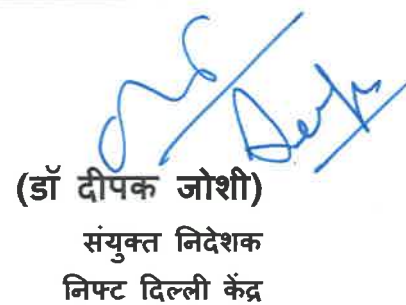 (डॉ दीपक जोशी)
संयुक्त निदेशक
निफ्ट दिल्ली केंद्र